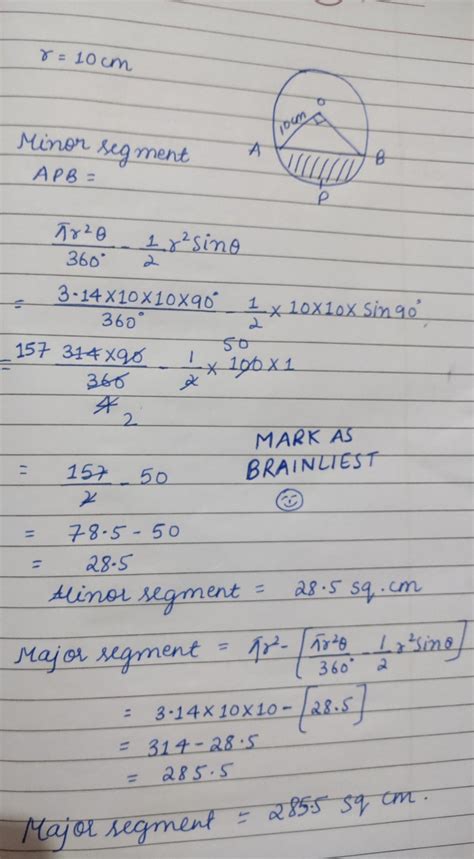 r = 10cm
O
10cm
A
B
P
Minor segment
APB =
πr²θ/360° - 1/2 r²sinθ
= 3·14×10×10×90°/360° - 1/2 × 10×10× sin90°
= 157 314×90/360 4 2 - 1/2 × 100 50 ×1
= 157/2 - 50
MARK AS
BRAINLIEST
= 78·5 - 50
= 28·5
Minor segment = 28·5 sq.cm
Major segment = πr² - [πr²θ/360° - 1/2 r²sinθ]
= 3·14×10×10 - [28·5]
= 314 - 28·5
= 285·5
Major segment = 285.5 sq cm.